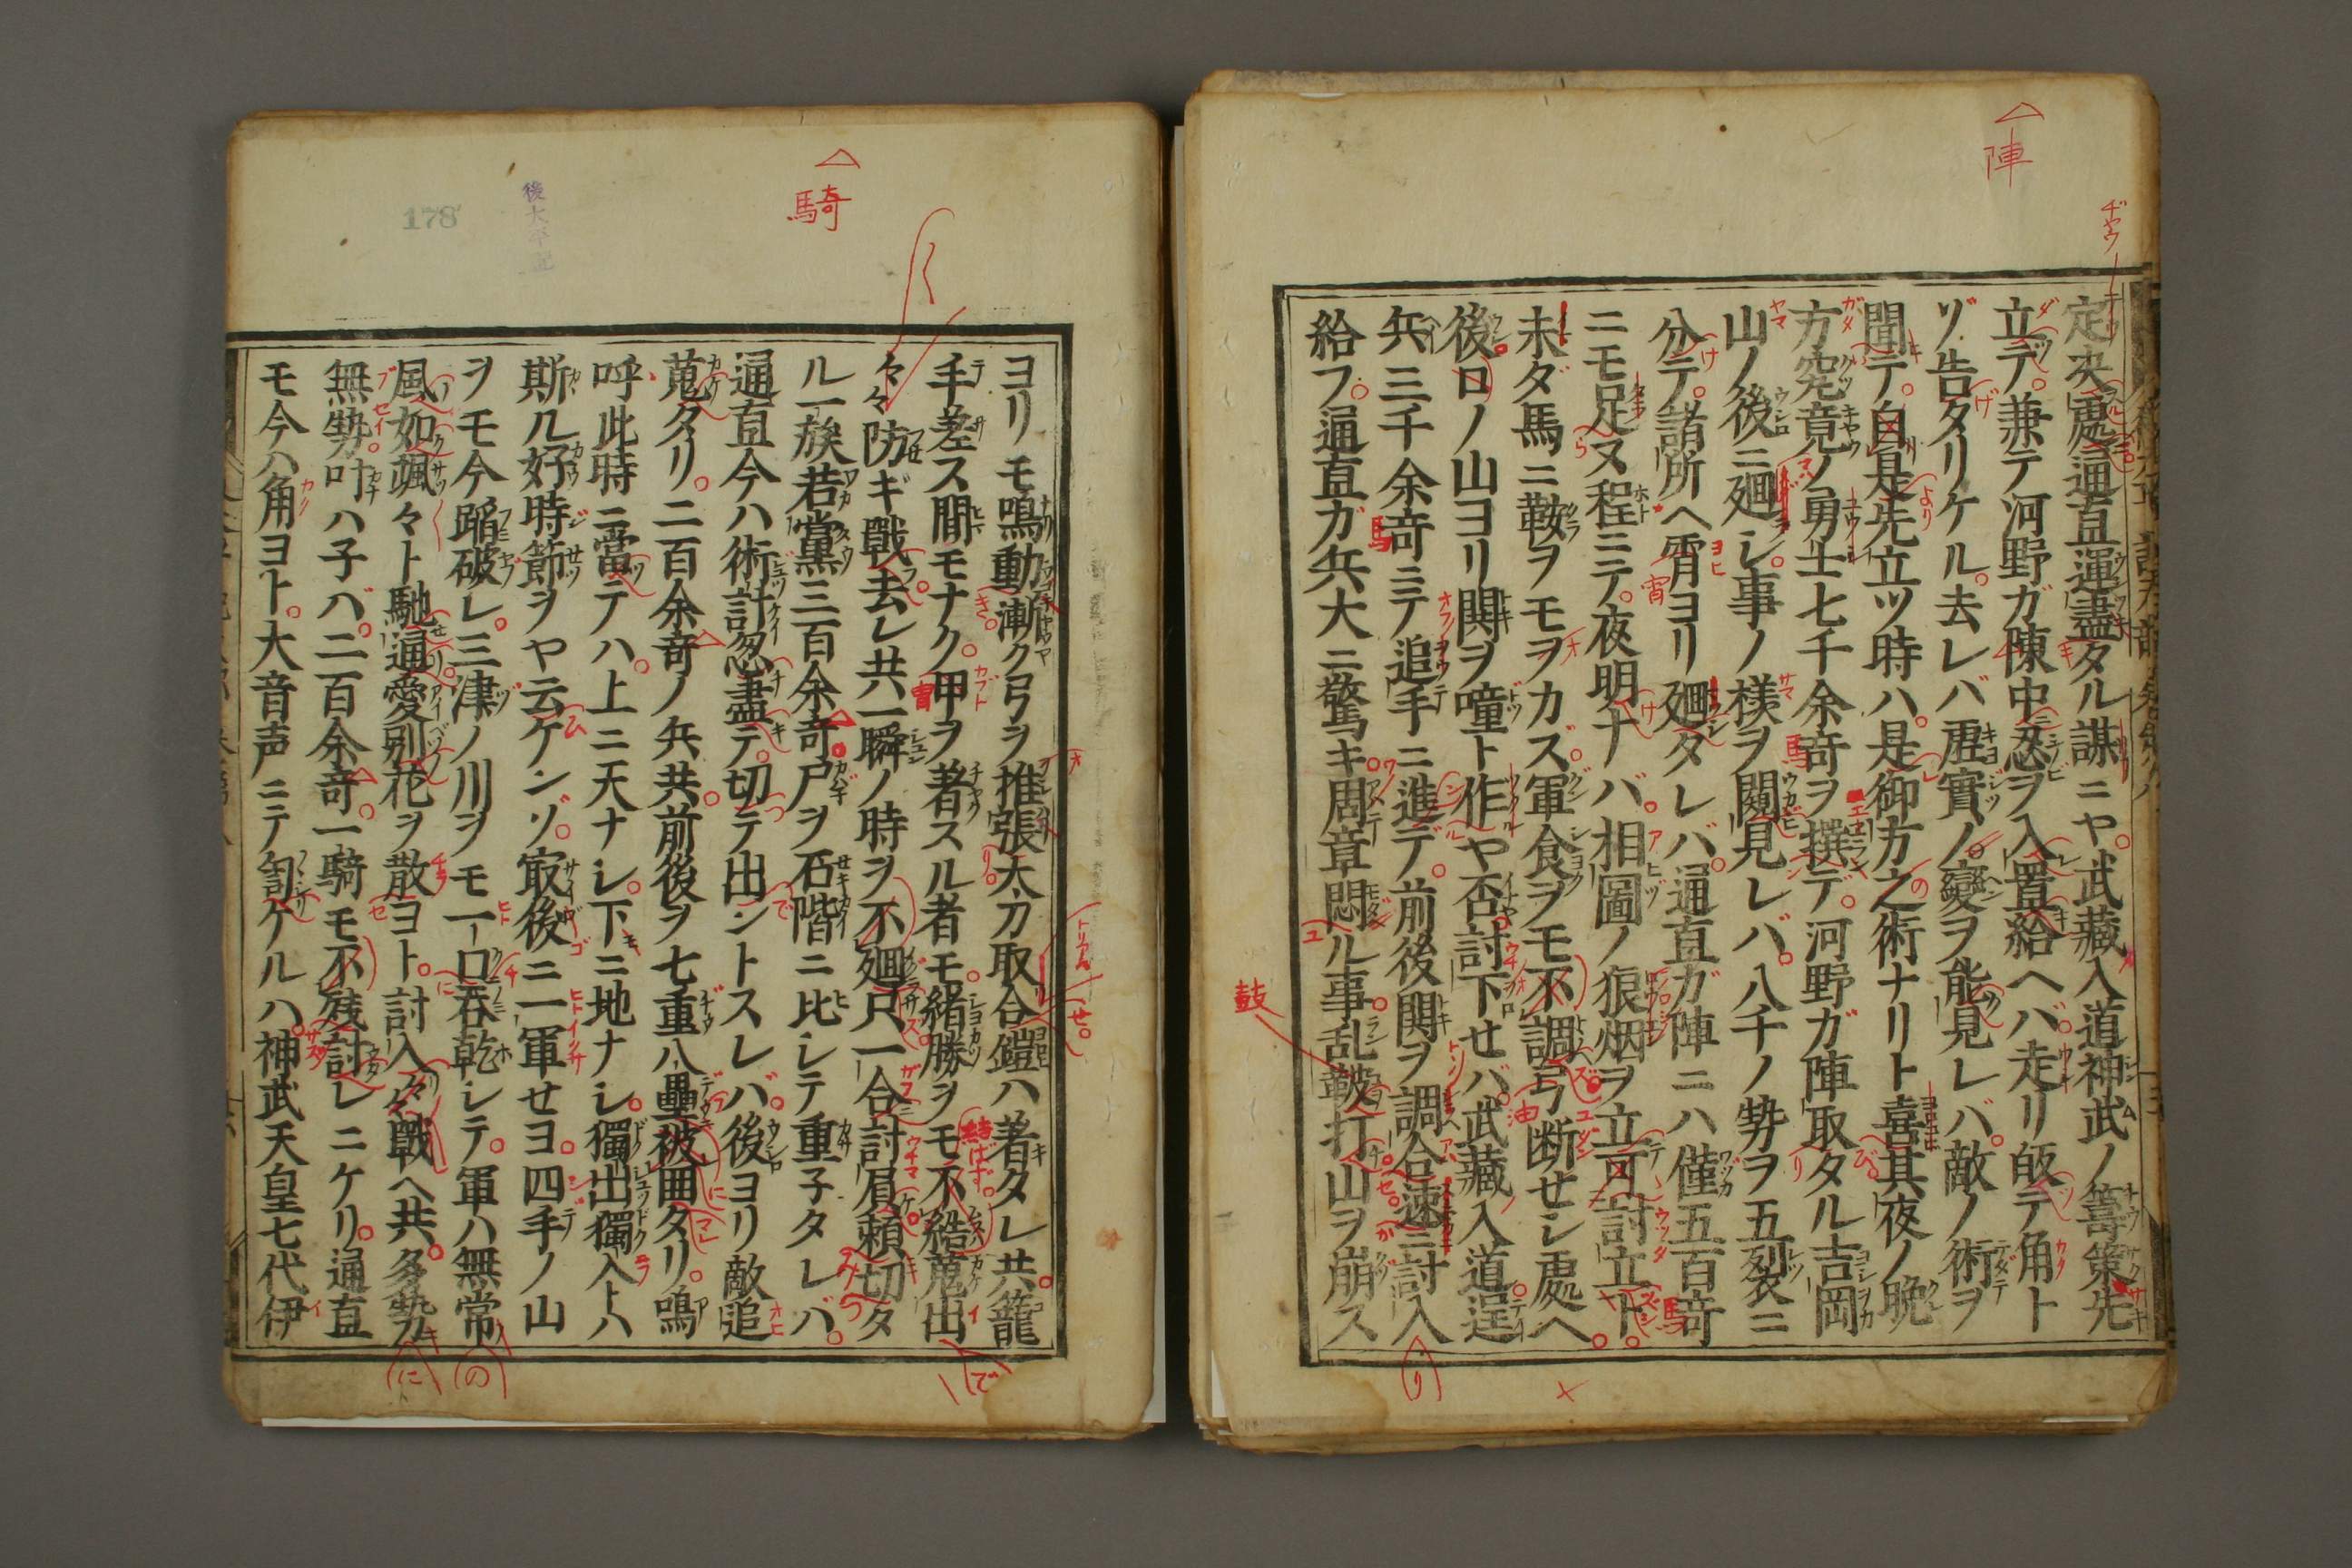 定决處通直運盡タル謀ニヤ武藏入道神武ノ籌策先
立テ兼テ河野ガ陳中忍ヲ入置給ヘバ走リ皈テ角ト
ゾ告タリケル去レバ虗實ノ變ヲ能見レバ敵ノ術ヲ
聞テ自是先立ツ時ハ是御方之術ナリト喜其夜ノ晩
方究竟ノ勇士七千余竒ヲ撰デ河野ガ陣取タル吉岡
山ノ後ニ廻シ事ノ様ヲ闚見レバ八千ノ勢ヲ五裂ニ
分テ諸所ヘ宵ヨリ廻タレバ通直ガ陣ニハ僅五百竒
ニモ足ヌ程ニテ夜明ナバ相圖ノ狼烟ヲ立可討立ト
未ダ馬ニ鞍ヲモヲカズ軍食ヲモ不調弓断せシ處ヘ
後ロノ山ヨリ関ヲ噇ト作ヤ否討下せバ武藏入道逞
兵三千余竒ニテ追手ニ進デ前後関ヲ調合速ニ討入
給フ通直ガ兵大ニ驚キ周章悶ル事乱鼓打山ヲ崩ス
ヨリモ鳴動漸ク弓ヲ推張太刀取合鎧ハ著タレ共籠
手差ス間モナク甲ヲ著スル者モ緒勝ヲモ不結蒐出
々々防ギ戰去レ共一瞬ノ時ヲ不廻只一合討屓頼切タ
ル一族若黨三百余竒尸ヲ石階ニ比シテ重子タレバ
通直今ハ術計忽盡テ切テ出ントスレバ後ヨリ敵追
蒐タリ二百余竒ノ兵共前後ヲ七重八疊被囲タリ嗚
呼此時ニ當テハ上ニ天ナシ下ニ地ナシ獨出獨入トハ
斯ル好時節ヲヤ云ケンゾ冣後ニ一軍せヨ四手ノ山
ヲモ今蹈破レ三津ノ川ヲモ一口呑乾シテ軍ハ無常
風如颯々ト馳通愛别花ヲ散ヨト討入々々戰ヘ共多勢
無勢叶ハ子バ二百余竒一騎モ不残討レニケリ通直
モ今ハ角ヨト大音声ニテ訇ケルハ神武天皇七代伊
陣
騎
鼓
後太平記
178